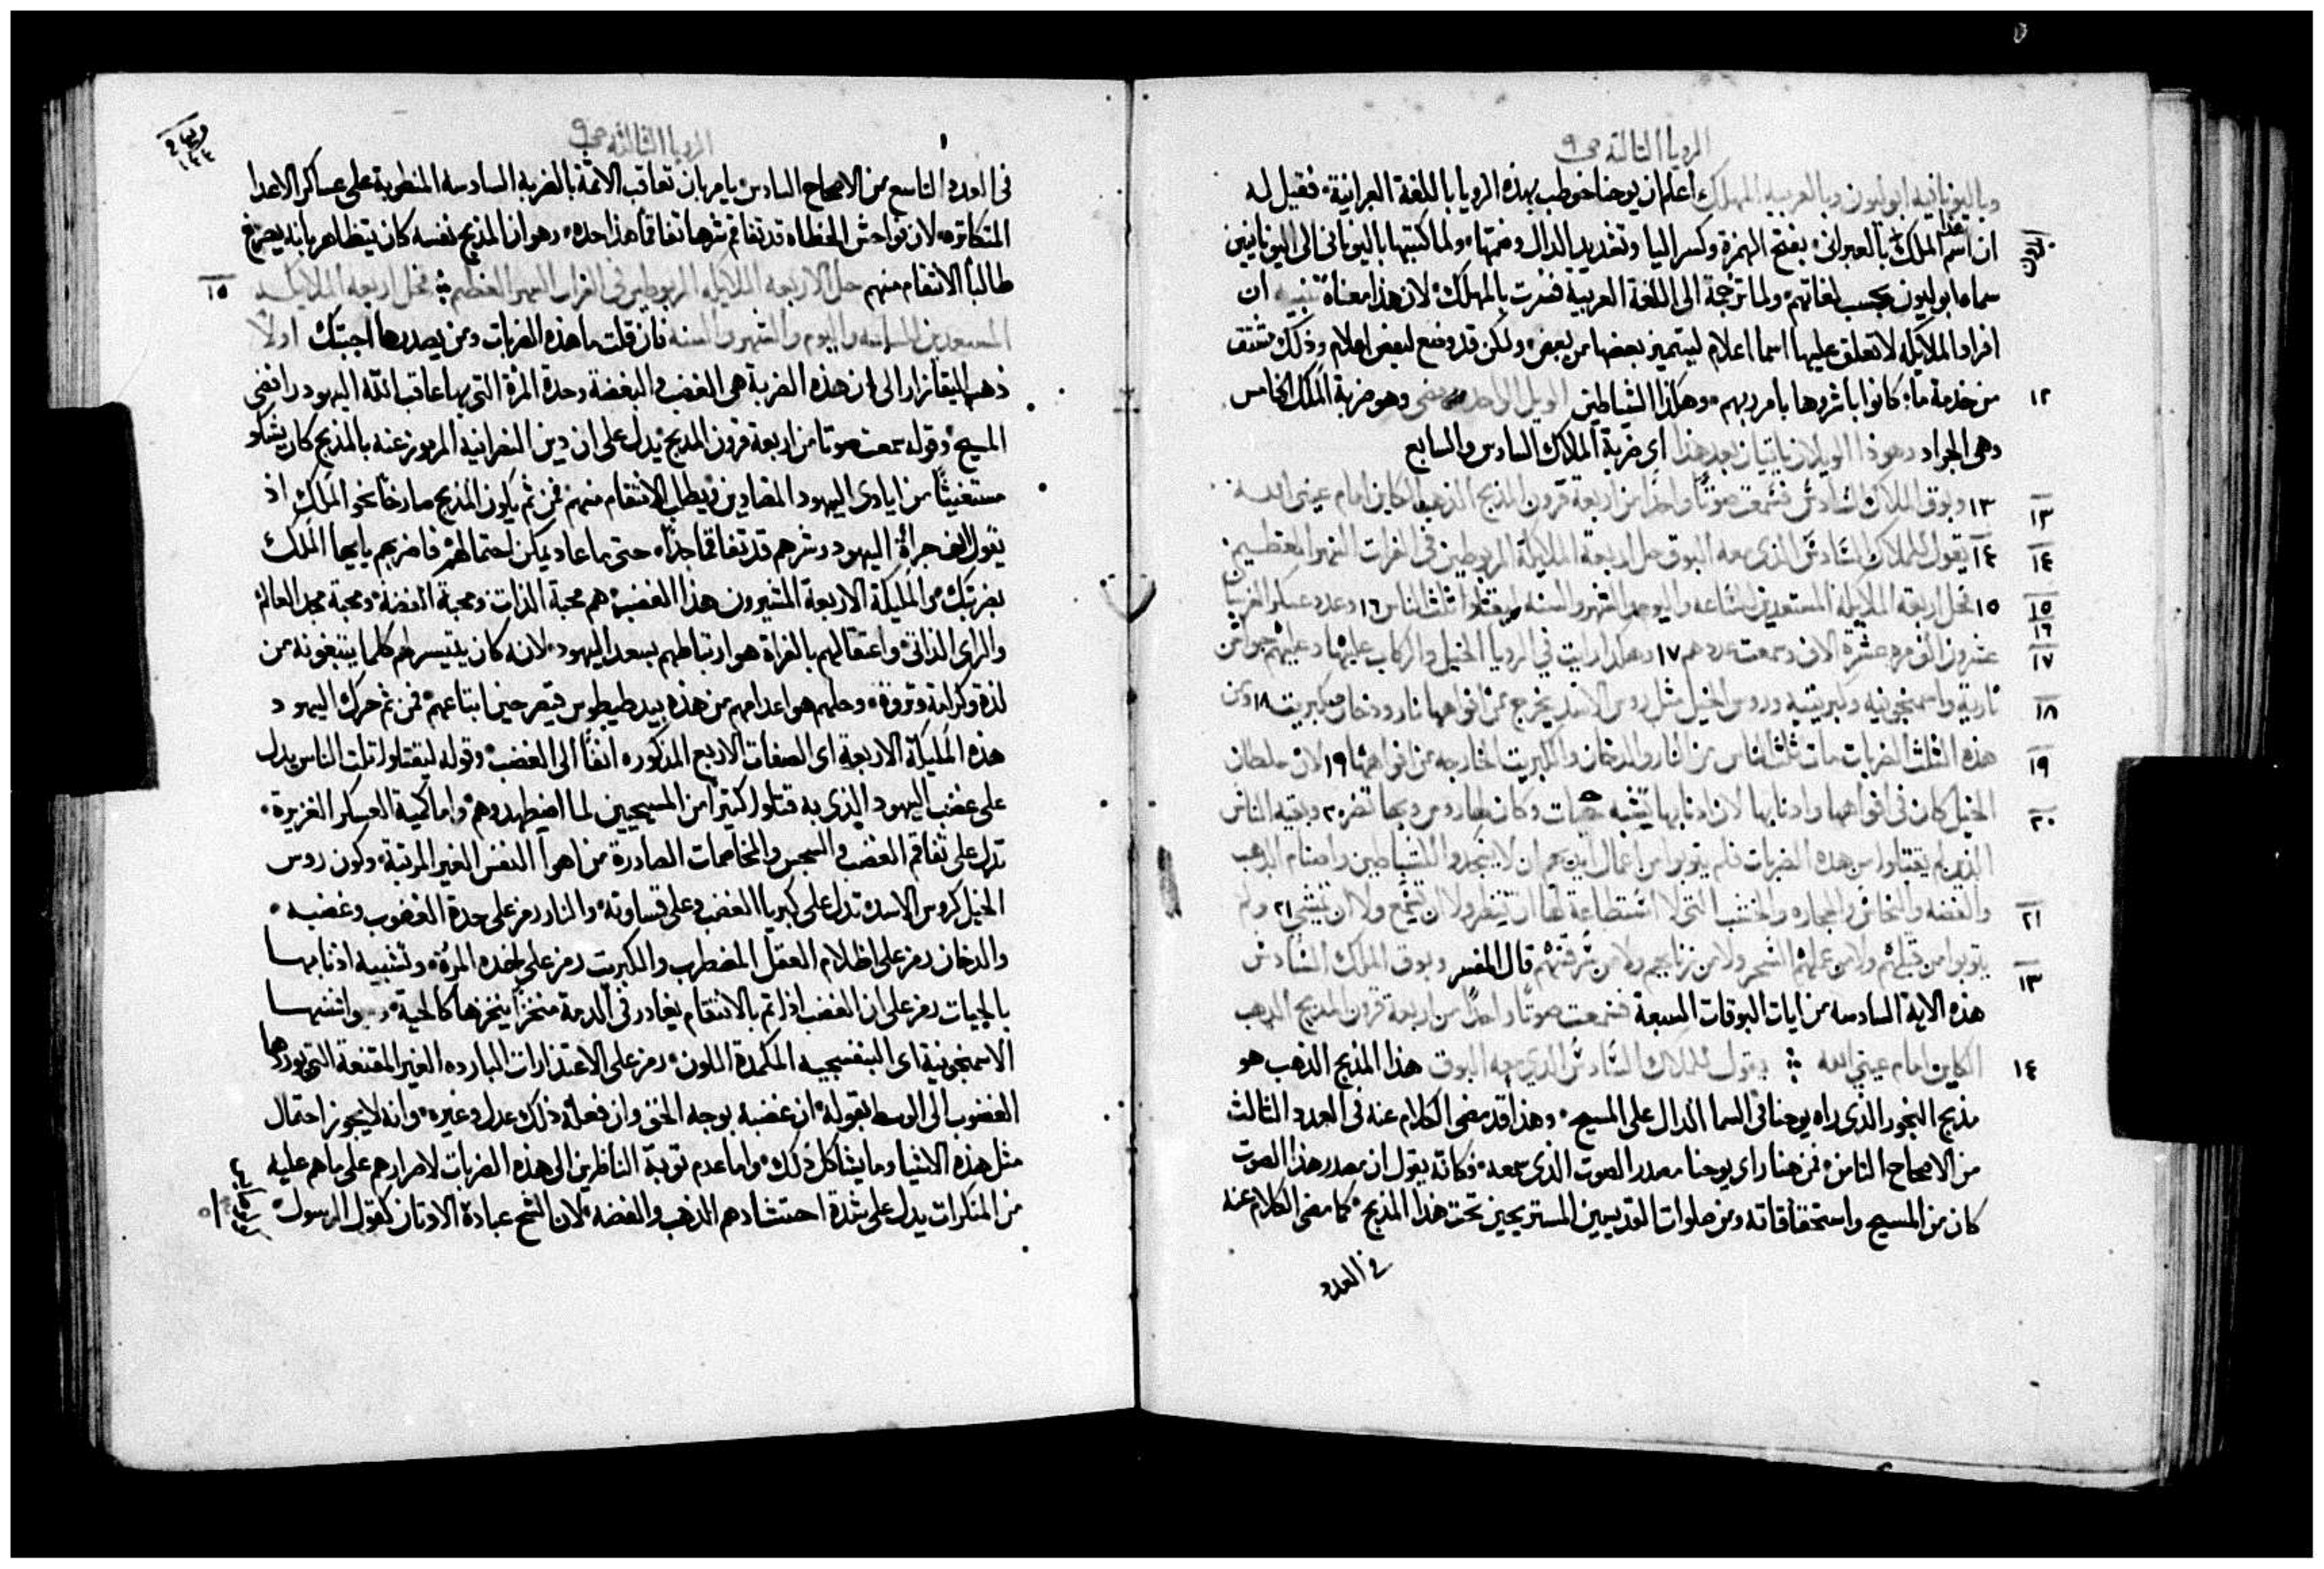 الرويا الثالثة ص ٩
وباليونانيه ابوليون وبالعربيه المهلك اعلم ان يوحنا خوطب بهذه الرويا باللغة العبرانية فقيل له
ان اسم هذا الملك بالعبراني بفتح الهمزة وكسر اليا وتشديد الدال وضمتها ولما كتبها باليوناني الى اليونانيين
سماه ابوليون بحسب لغاتهم ولما ترجمة الى اللغة العربية فسرت بالمهلك لان هذا معناه تنبيه ان
افراد الملايكه لا تعلق عليها اسما اعلام ليتميز بعضها من بعض ولكن قد وضع لبعض اعلام وذلك مشتق
١٢ من خدمة ما كانوا باشروها بامر ربهم وهكذا الشياطين الويل الواحد مضى وهو ضربة الملك الخامس
وهى الجراد وهوذا الويلان ياتيان بعد هذا اى ضربة الملاك السادس والسابع
١٣ ١٣ وبوق الملاك السادس فسمعت صوتا واحدا من اربعة قرون المذبح الذهب الكاين امام عينى الله
١٤ ١٤ يقول للملاك السادس الذى معه البوق حل اربعة الملايكة المربوطين فى الفرات النهر العظيم
١٥ ١٥ فحل اربعة الملايكه المستعدين للساعه واليوم والشهر والسنه ليقتلوا ثلث الناس ١٦ وعدد عسكر الفرسان
١٦
١٧ عشرون الف مره عشرة الاف وسمعت عددهم ١٧ وهكذا رايت فى الرويا الخيل والركاب عليها وعليهم جواشن
١٨ نارية واسمنجونيه وكبريتيه وروس الخيل مثل روس الاسد يخرج من افواهها نار ودخان وكبريت ١٨ ومن
١٩ هذه الثلث الضربات مات ثلث الناس من النار والدخان والكبريت الخارجه من افواهها ١٩ لان سلطان
٢٠ الخيل كان فى افواهها واذنابها لان اذنابها تشبه حيات وكان لها روس وبها تضر ٢٠ وبقيه الناس
الذين لم يقتلوا من هذه الضربات فلم يتوبوا من اعمال ايديهم ان لا يسجدوا للشياطين واصنام الذهب
٢١ والفضه والنحاس والحجاره والخشب التى لا استطاعة لها ان تنظر ولا ان تسمع ولا ان تمشى ٢١ ولم
يتوبوا من قتلهم ولا من عملهم السحر ولا من زنايهم ولا من سرقتهم قال المفسر وبوق الملاك السادس
١٣ هذه الاية السادسه من ايات البوقات السبعة فسمعت صوتا واحدا من اربعة قرون المذبح الذهب
١٤ الكاين امام عينى الله يقول للملاك السادس الذى معه البوق هذا المذبح الذهب هو
مذبح البخور الذى راه يوحنا فى السما الدال على المسيح وهذا قد مضى الكلام عنه فى العدد الثالث
من الاصحاح الثامن فمن هنا راى يوحنا مصدر الصوت الذى سمعه فكانه يقول ان مصدر هذا الصوت
كان من المسيح واستحقاقاته ومن صلوات القديسين المستريحين تحت هذا المذبح كما مضى الكلام عنه
فى العدد
الرويا الثالثة ص ٩
فى العدد التاسع من الاصحاح السادس يامر بان تعاقب الاثمة بالضربه السادسه المنطوية على عساكر الاعدا
المتكاثره لان فواحش الخطاه قد تفاقم شرها تفاقما هذا حده وهو ان المذبح نفسه كان يتظاهر بانه يصرخ
١٥ طالبا الانتقام منهم حل الاربعه الملايكه المربوطين فى الفرات النهر العظيم فحل اربعه الملايكه
المستعدين للساعه واليوم والشهر والسنه فان قلت ما هذه الضربات ومن يصدرها اجبتك اولا
ذهب اليقازار الى ان هذه الضربة هى الغضب والبغضة وحدة المرة التى بها عاقب الله اليهود رافضى
المسيح وقوله سمعت صوتا من اربعة قرون المذبح يدل على ان دين النصرانية المرموز عنه بالمذبح كان يشكو
مستغيثا من ايادى اليهود المضادين ويطلب الانتقام منهم فمن ثم يكون المذبح صارخا نحو الملك اذ
يقول الف جراة اليهود وشرهم قد تفاقما جدا حتى ما عاد يمكن احتمالهم فاضربهم يا ايها الملك
بضربتك والمليكة الاربعة المثيرون هذا الغضب هم محبة الذات ومحبة الفضة ومحبة مجد العالم
والراى الذاتى واعتقالهم بالفراة هو ارتباطهم بسعد اليهود لانه كان يتيسر لهم كلما يبتغونه من
لذة وكرامة وثروة وحلهم هو اعدامهم من هذه بيد طيطوس قيصر حينما ابتاعهم فمن ثم حرك اليهود
هذه المليكة الاربعة اى الصفات الاربع المذكوره انفا الى الغضب وقوله ليقتلوا ثلث الناس يدل
على غضب اليهود الذى به قتلوا كثيرا من المسيحيين لما اضطهدوهم واما كمية العسكر الغزيرة
تدل على تفاقم الغضب والسجس والمخاصمات الصادرة من اهوا النفس الغير المرتبة وكون روس
الخيل كروس الاسد تدل على كبريا الغضب وعلى قساوته والنار رمز على حدة الغضوب وغضبه
والدخان رمز على اظلام العقل المضطرب والكبريت رمز على هذه المرة وتشبيه اذنابها
بالحيات رمز على ان الغضب اذا تم بالانتقام يغادر فى الذمة منخزا ينخزها كالحية
الاسمنجونية اى البنفسجيه المكمدة اللون رمز على الاعتذارات البارده الغير المقنعة التى يوردها
الغضوب الى الوسط بقوله ان غضبه بوجه الحق وان فعله ذلك عدل وغيره وانه لا يجوز احتمال
مثل هذه الاشيا وما يشاكل ذلك واما عدم توبة الناظرين الى هذه الضربات لاصرارهم على ما هم عليه
من المنكرات يدل على شدة احتشادهم الذهب والفضه لان الشح عبادة الاوثان كقول الرسول